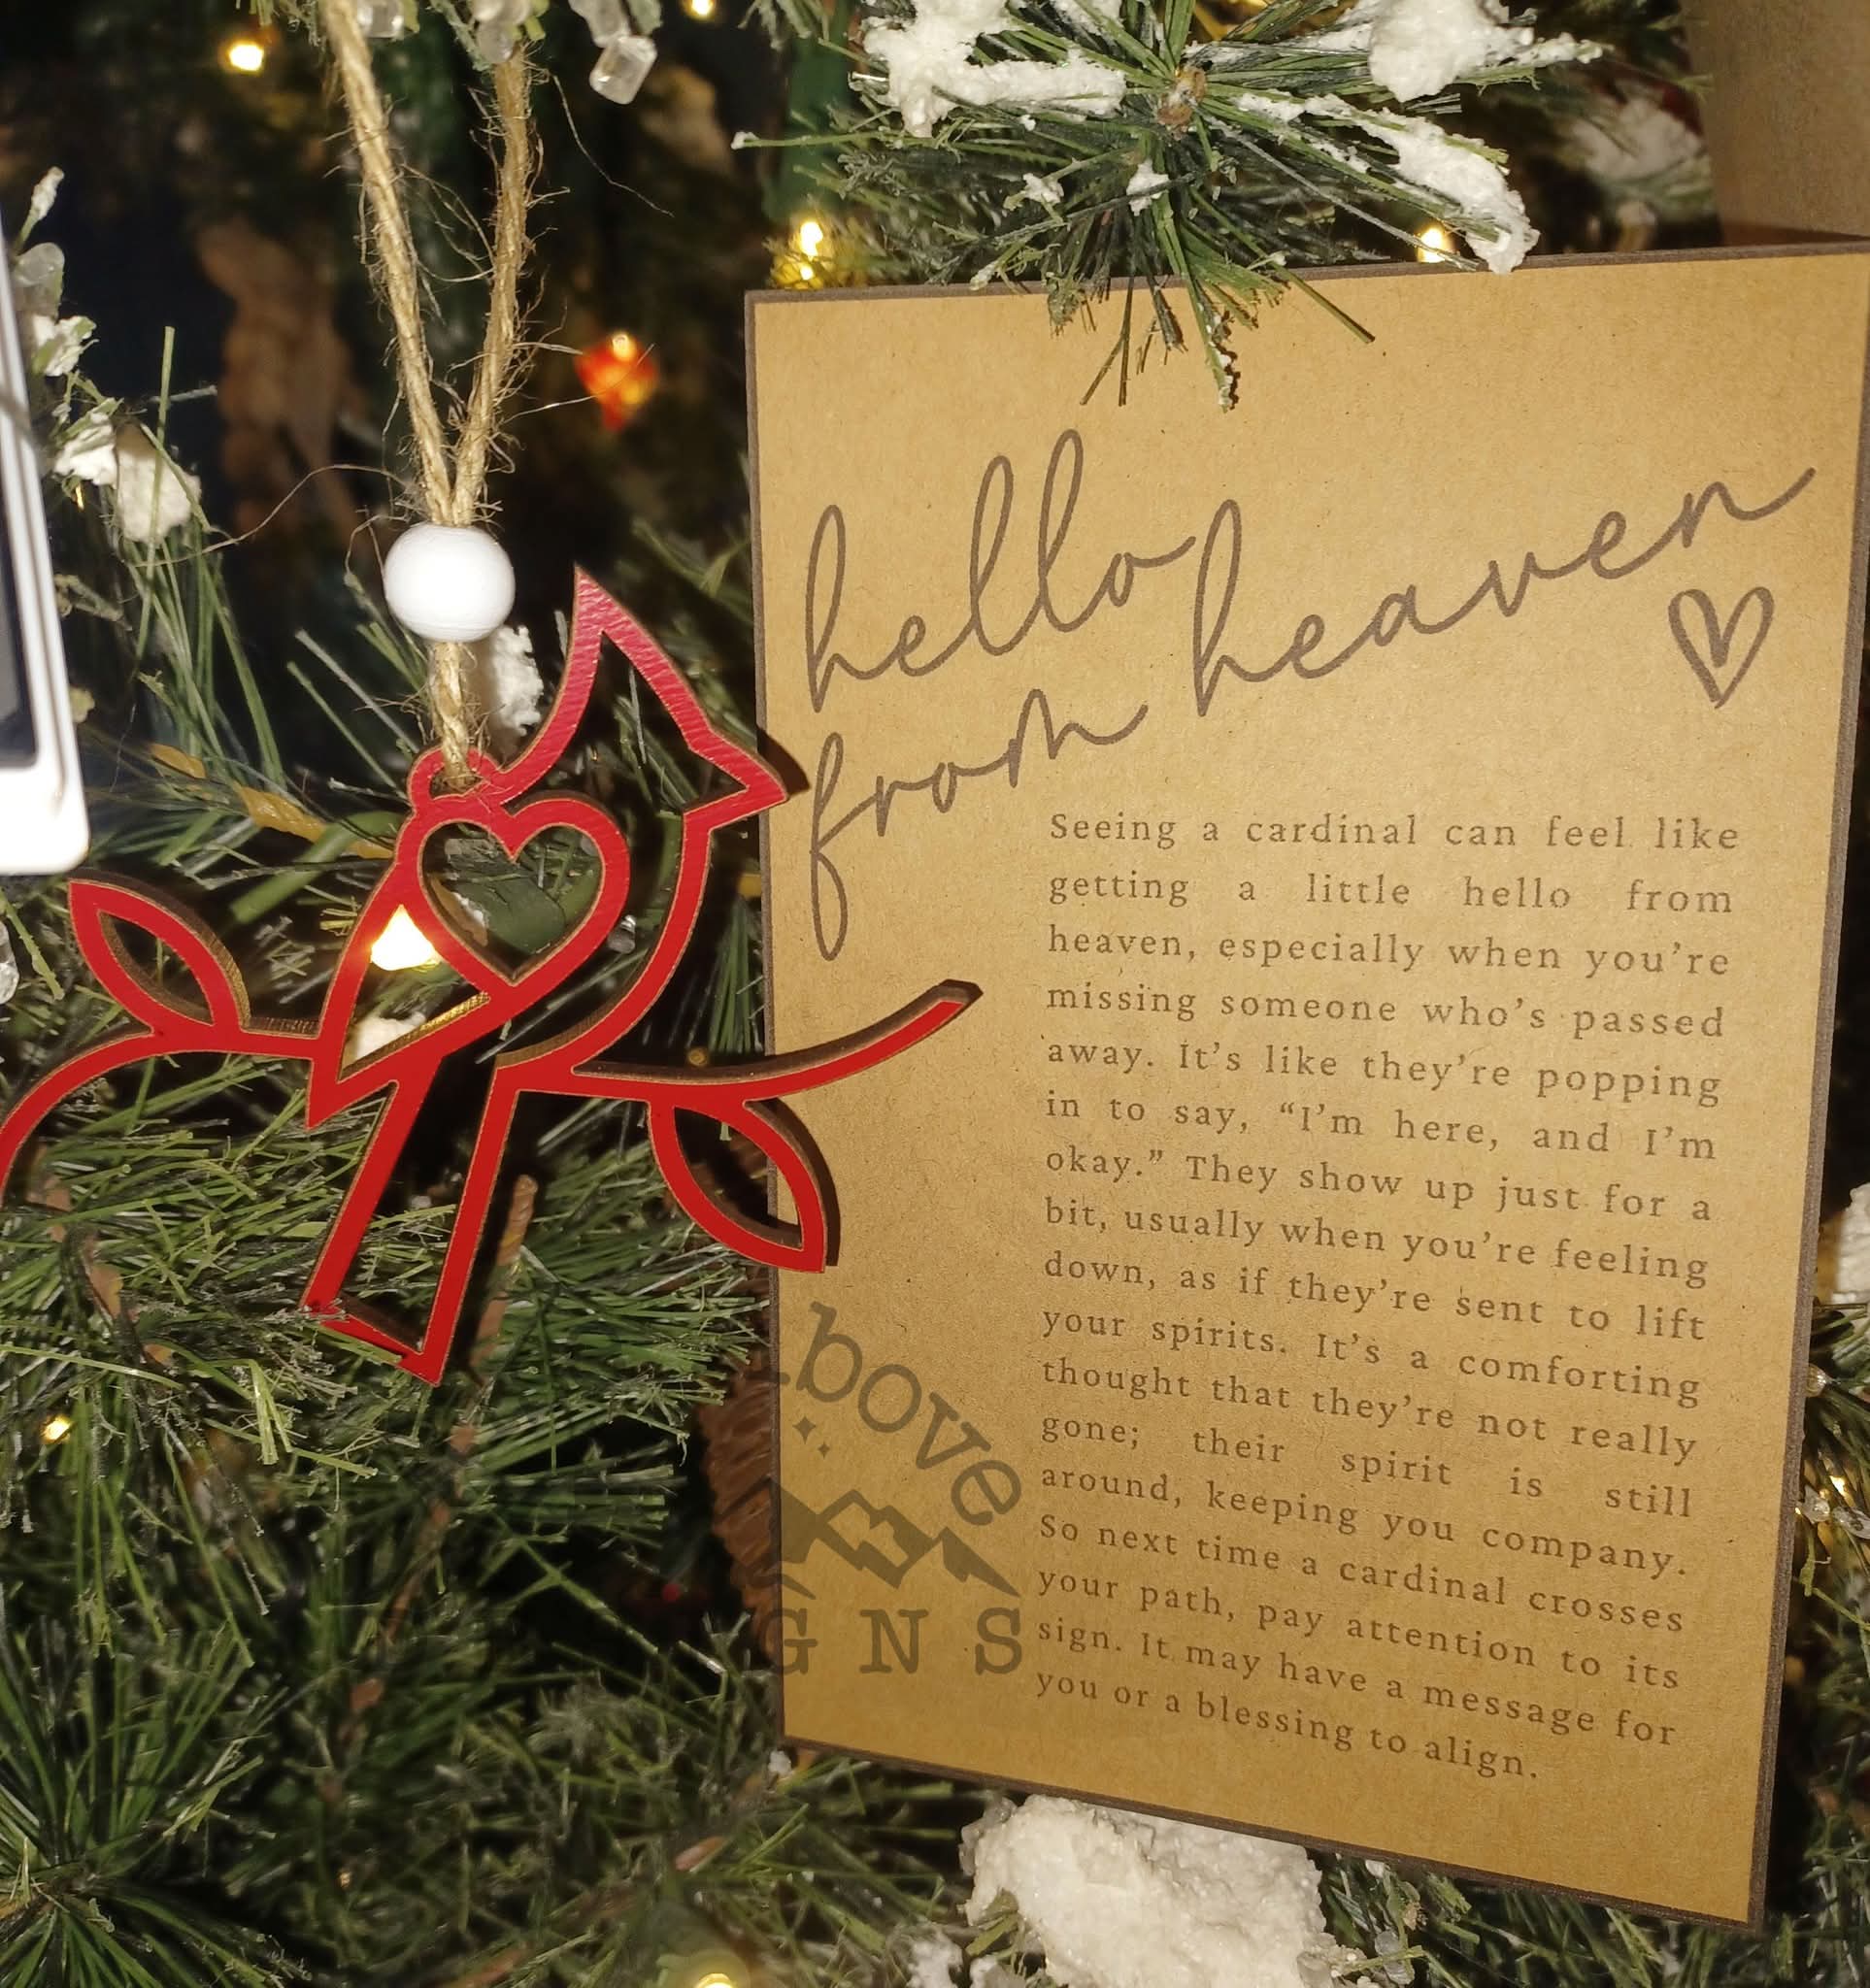 hello
from heaven
Seeing a cardinal can feel like
getting a little hello from
heaven, especially when you're
missing someone who's passed
away. It's like they're popping
in to say, “I'm here, and I'm
okay.” They show up just for a
bit, usually when you're feeling
down, as if they're sent to lift
your spirits. It's a comforting
thought that they're not really
gone; their spirit is still
around, keeping you company.
So next time a cardinal crosses
your path, pay attention to its
sign. It may have a message for
you or a blessing to align.
bove
GNS